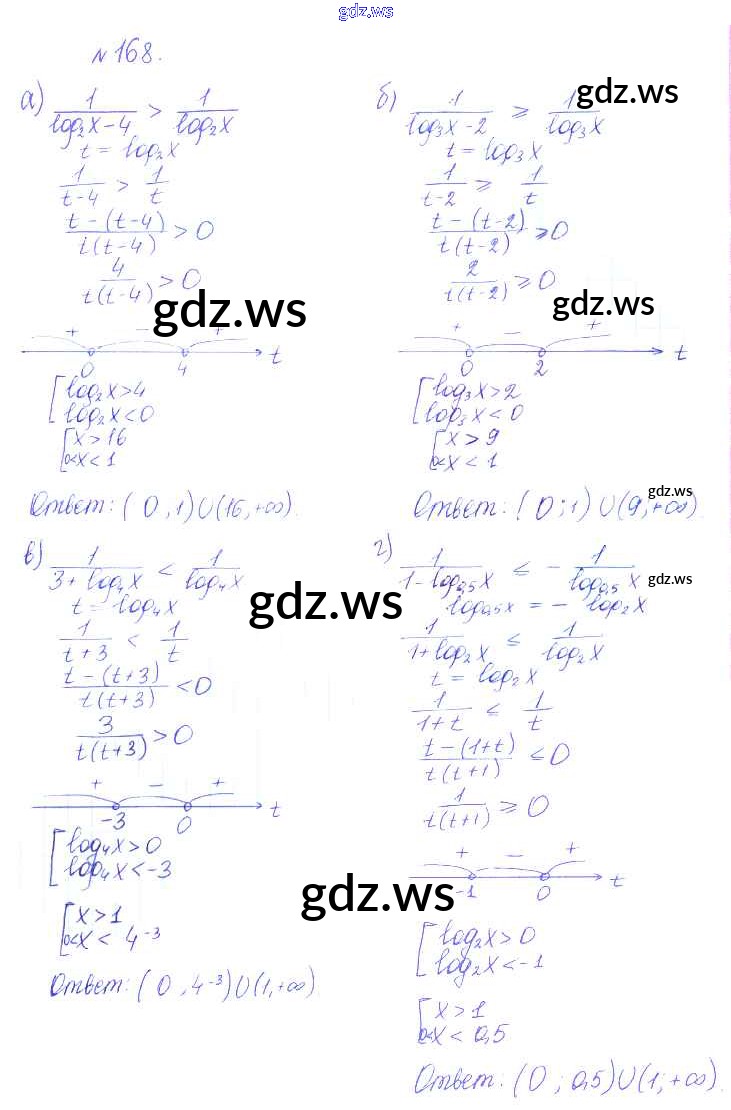 gdz.ws
№168.
а) 1/(log₂x-4) > 1/log₂x
t = log₂x
1/(t-4) > 1/t
(t-(t-4))/(t(t-4)) > 0
4/(t(t-4)) > 0
gdz.ws
+ - +
0 4 t
[log₂x>4
log₂x<0
[x>16
0<x<1
Ответ: (0,1)∪(16,+∞).
б) 1/(log₃x-2) ⩾ 1/log₃x
gdz.ws
t = log₃x
1/(t-2) ⩾ 1/t
(t-(t-2))/(t(t-2)) ⩾0
2/(t(t-2)) ⩾0
gdz.ws
+ - +
0 2 t
[log₃x>2
log₃x<0
[x>9
0<x<1
gdz.ws
Ответ: (0;1)∪(9,+∞)
в) 1/(3+log₄x) < 1/log₄x
t = log₄x
gdz.ws
1/(t+3) < 1/t
(t-(t+3))/(t(t+3)) <0
3/(t(t+3)) >0
+ - +
-3 0 t
[log₄x>0
log₄x<-3
gdz.ws
[x>1
0<x< 4⁻³
Ответ: (0,4⁻³)∪(1,+∞)
г) 1/(1-log₀,₅x) ⩽ - 1/log₀,₅x
gdz.ws
log₀,₅x = - log₂x
1/(1+log₂x) ⩽ 1/log₂x
t = log₂x
1/(1+t) ⩽ 1/t
(t-(1+t))/(t(t+1)) ⩽0
1/(t(t+1)) ⩾ 0
+ - +
-1 0 t
[log₂x>0
log₂x<-1
[x>1
0<x<0,5
Ответ: (0; 0,5)∪(1;+∞).